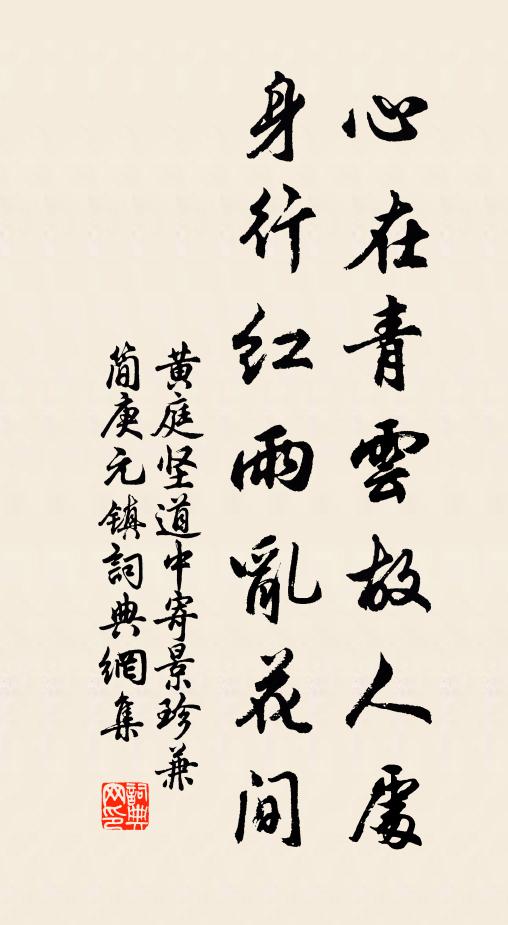 心在青雲故人處
身行红雨亂花间
黄庭坚道中寄景珍兼
简庾元镇詞典網集
詞典网印